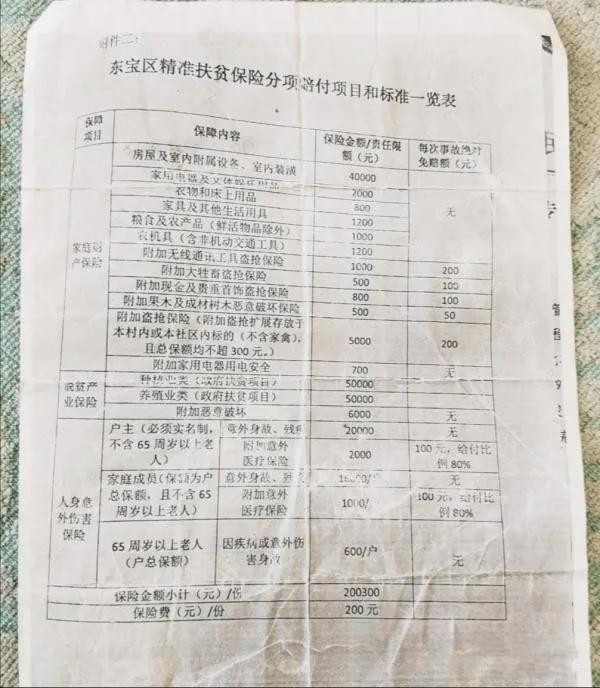 附件二:
东宝区精准扶贫保险分项赔付项目和标准一览表
保障项目 保障内容 保险金额/责任限额（元） 每次事故绝对免赔额（元）
家庭财产保险
房屋及室内附属设备、室内装潢 40000 无
家用电器及文体娱乐用品 2000
衣物和床上用品 800
家具及其他生活用具 1200
粮食及农产品（鲜活物品除外） 1000
农机具（含非机动交通工具） 1200
附加无线通讯工具盗抢保险 1000 200
附加大牲畜盗抢保险 500 100
附加现金及贵重首饰盗抢保险 800 100
附加果木及成材树木恶意破坏保险 500 50
附加盗抢保险（附加盗抢扩展存放于
本村内或本社区内标的（不含家禽），
且总保额均不超 300 元。） 5000 200
附加家用电器用电安全 700 无
脱贫产业保险
种植业类（政府扶贫项目） 50000
养殖业类（政府扶贫项目） 50000
附加恶意破坏 6000 无
人身意外伤害保险
户主（必须实名制，不含 65 周岁以上老人） 意外身故、残疾 20000 无
附加意外医疗保险 2000 100 元，给付比例 80%
家庭成员（保额为户总保额，且不含 65 周岁以上老人） 意外身故、 /户 无
附加意外医疗保险 1000/ 100 元，给付比例 80%
65 周岁以上老人（户总保额） 因疾病或意外伤害身故 600/户 无
保险金额小计（元）/份 200300
保险费（元）/份 200 元